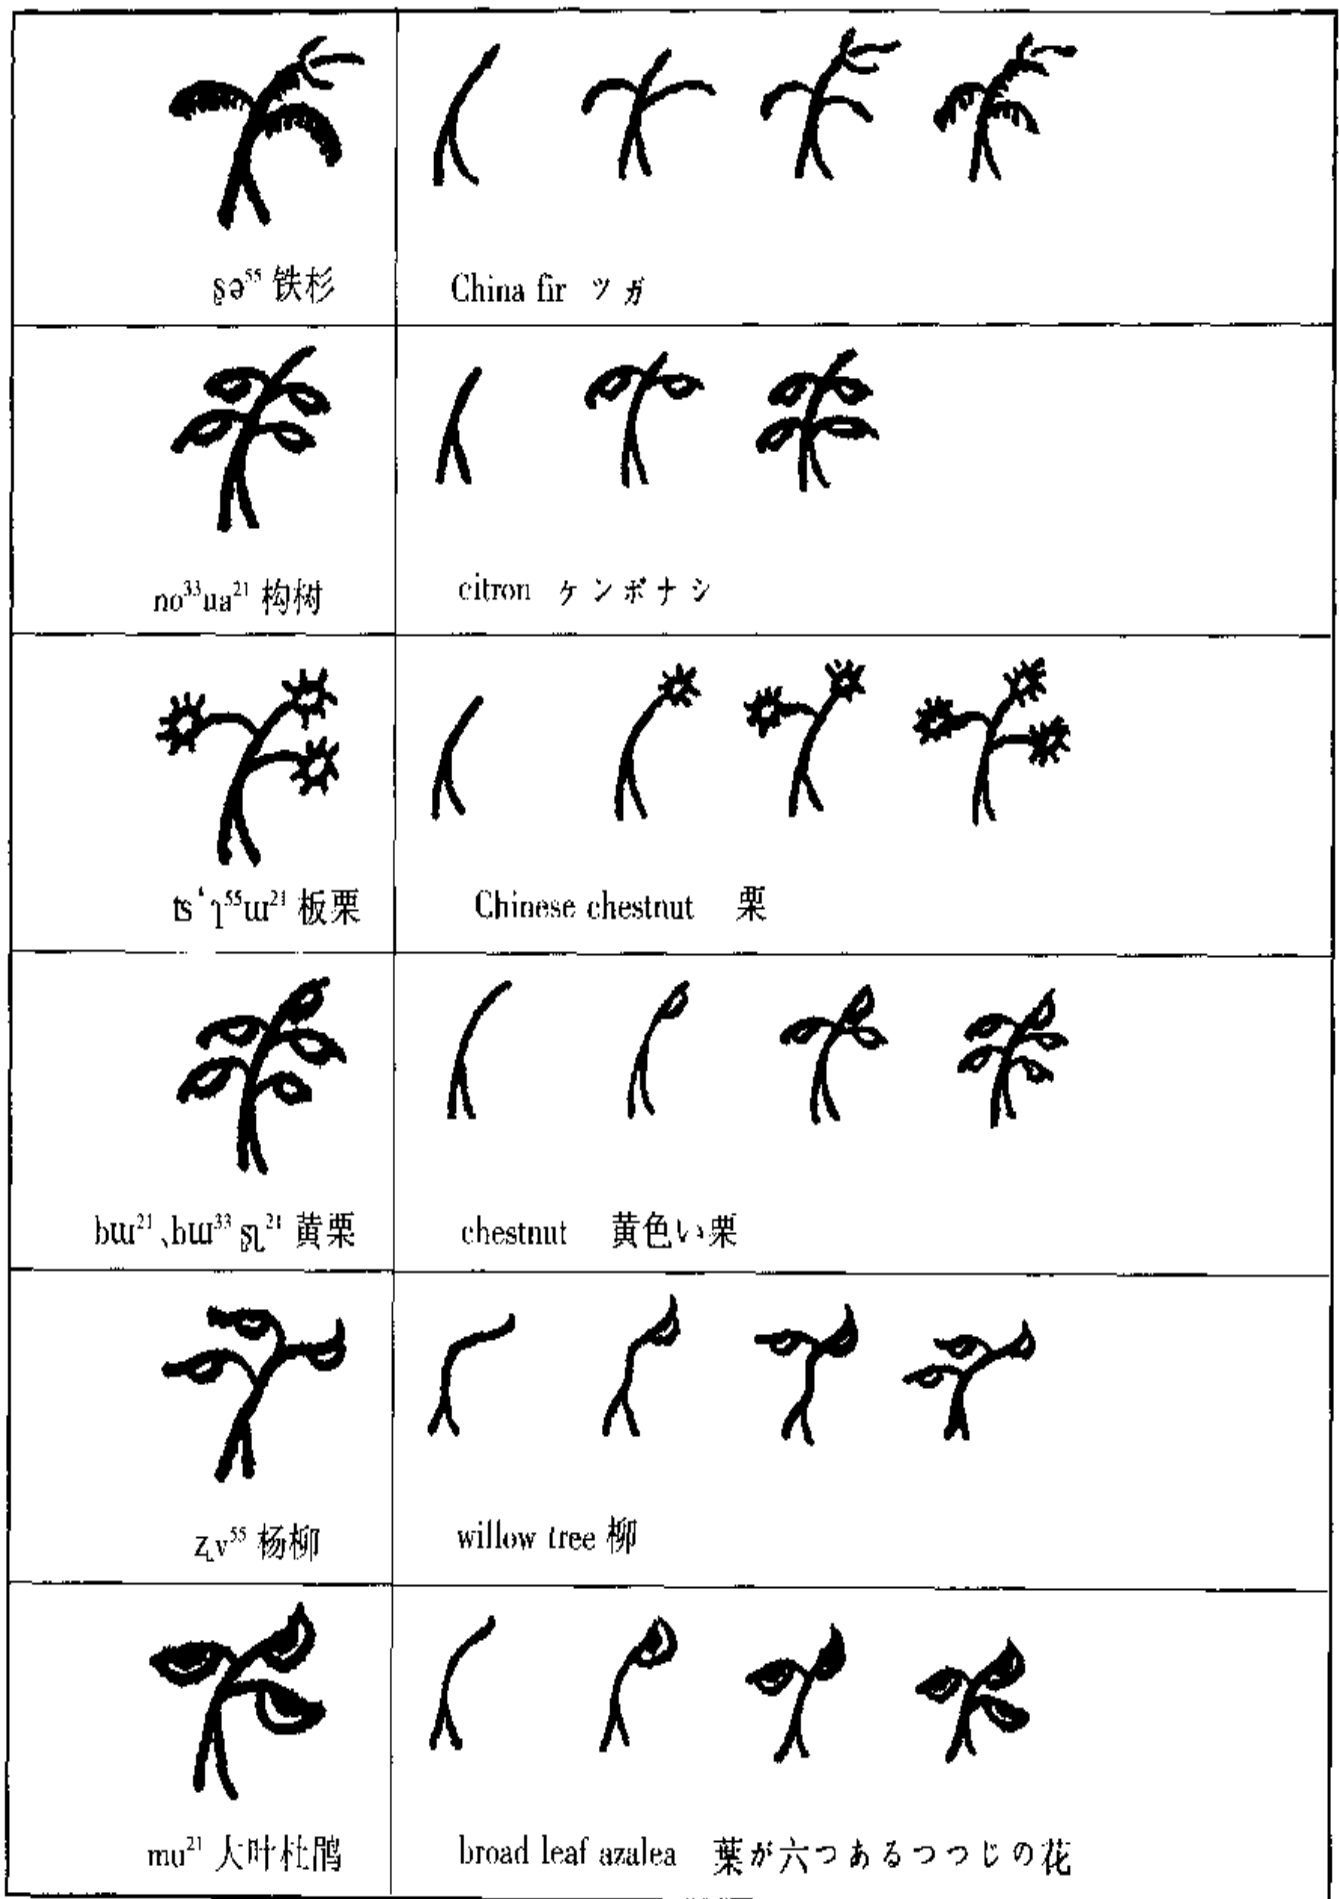 ʂə⁵⁵ 铁杉 China fir ツガ
no³³ua²¹ 构树 citron ケンポナシ
ts‘ɿ⁵⁵ɯ²¹ 板栗 Chinese chestnut 栗
bɯ²¹、bɯ³³ʂʅ²¹ 黄栗 chestnut 黄色い栗
ʐv⁵⁵ 杨柳 willow tree 柳
mu²¹ 大叶杜鹃 broad leaf azalea 葉が六つあるつつじの花